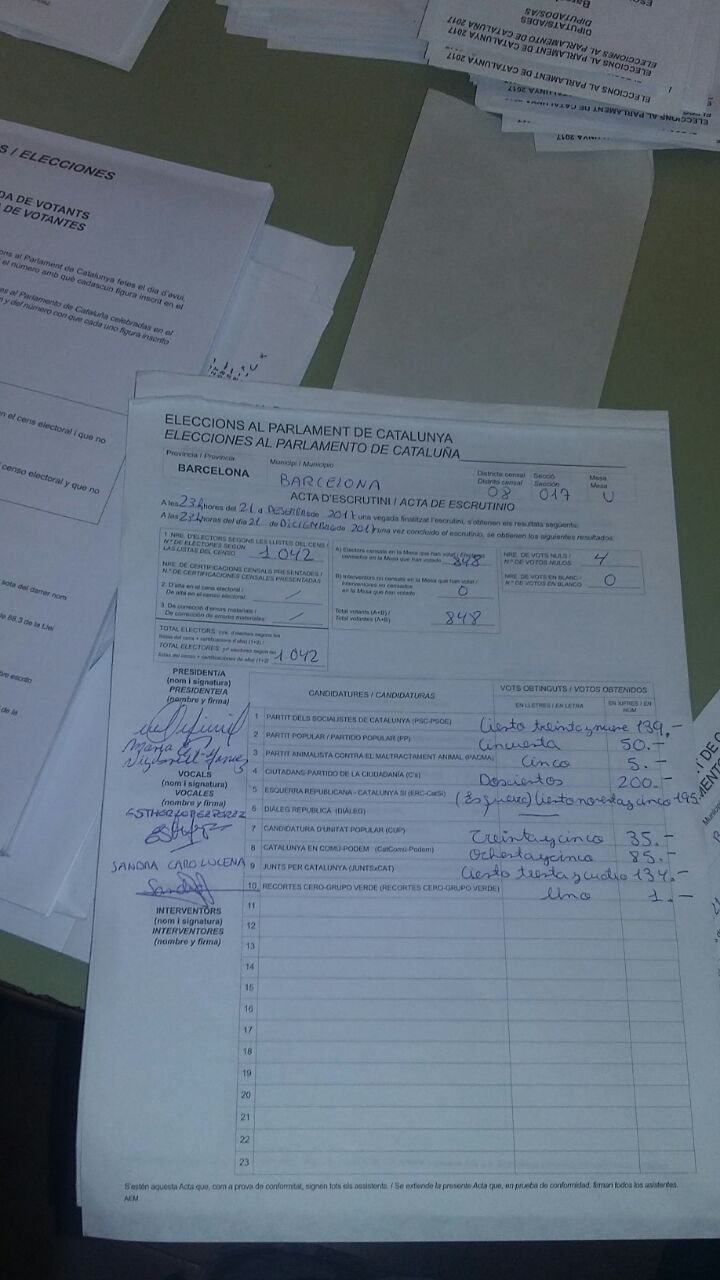 DIPUTATS/ADES
DIPUTADOS/AS
ELECCIONS AL PARLAMENT DE CATALUNYA 2017
ELECCIONES AL PARLAMENTO DE CATALUÑA 2017
ELECCIONS AL PARLAMENT DE CATALUNYA 2017
S / ELECCIONES
DA DE VOTANTS
A DE VOTANTES
ons al Parlament de Catalunya fetes el dia d'avui,
el número amb què cadascun figura inscrit en el
es al Parlamento de Cataluña celebradas en el
n y del número con que cada uno figura inscrito
en el cens electoral i que no
censo electoral y que no
sota del darrer nom
ELECCIONS AL PARLAMENT DE CATALUNYA
ELECCIONES AL PARLAMENTO DE CATALUÑA
Província / Provincia BARCELONA
Municipi / Municipio BARCELONA
Districte censal Distrito censal 08
Secció Sección 017
Mesa Mesa U
ACTA D'ESCRUTINI / ACTA DE ESCRUTINIO
A les 23h hores del 21 d DESEMBRE de 2017 una vegada finalitzat l'escrutini, s'obtenen els resultats següents:
A las 23h horas del día 21 de DICIEMBRE de 2017 una vez concluido el escrutinio, se obtienen los siguientes resultados:
1. NRE. D'ELECTORS SEGONS LES LLISTES DEL CENS /
N.º DE ELECTORES SEGÚN
LAS LISTAS DEL CENSO 1.042
NRE. DE CERTIFICACIONS CENSALS PRESENTADES /
N.º DE CERTIFICACIONES CENSALES PRESENTADAS
2. D'alta en el cens electoral /
De alta en el censo electoral: /
3. De correcció d'errors materials /
De corrección de errores materiales: /
TOTAL ELECTORS
TOTAL ELECTORES 1 042
A) Electors censats en la Mesa que han votat /
en la Mesa que han votado 848
B) Interventors no censats en la Mesa que han votat /
Interventores no censados
en la Mesa que han votado 0
Total votants (A+B) /
Total votantes (A+B) 848
NRE. DE VOTS NULS /
N.º DE VOTOS NULOS 4
NRE. DE VOTS EN BLANC /
N.º DE VOTOS EN BLANCO 0
PRESIDENT/A
(nom i signatura)
PRESIDENTE/A
(nombre y firma)
VOCALS
(nom i signatura)
VOCALES
(nombre y firma)
SANDRA CARO LUCENA
INTERVENTORS
(nom i signatura)
INTERVENTORES
(nombre y firma)
CANDIDATURES / CANDIDATURAS
VOTS OBTINGUTS / VOTOS OBTENIDOS
EN LLETRES / EN LETRA
EN XIFRES / EN NÚM
1 PARTIT DELS SOCIALISTES DE CATALUNYA (PSC-PSOE) Ciento treinta y nueve 139.-
2 PARTIT POPULAR / PARTIDO POPULAR (PP) Cincuenta 50.-
3 PARTIT ANIMALISTA CONTRA EL MALTRACTAMENT ANIMAL (PACMA) Cinco 5.-
4 CIUTADANS-PARTIDO DE LA CIUDADANÍA (C's) Doscientos 200.-
5 ESQUERRA REPUBLICANA - CATALUNYA SÍ (ERC-CatSí) (Esquerra) Ciento noventa y cinco 195.-
6 DIÀLEG REPUBLICÀ (DIÀLEG) —
7 CANDIDATURA D'UNITAT POPULAR (CUP) Treinta y cinco 35.-
8 CATALUNYA EN COMÚ-PODEM (CatComú-Podem) Ochenta y cinco 85.-
9 JUNTS PER CATALUNYA (JUNTSxCAT) Ciento treinta y cuatro 134.-
10 RECORTES CERO-GRUPO VERDE (RECORTES CERO-GRUPO VERDE) Uno 1.-
11
12
13
14
15
16
17
18
19
20
21
22
23
S'estén aquesta Acta que, com a prova de conformitat, signen tots els assistents. / Se extiende la presente Acta que, en prueba de conformidad, firman todos los asistentes.
AEM